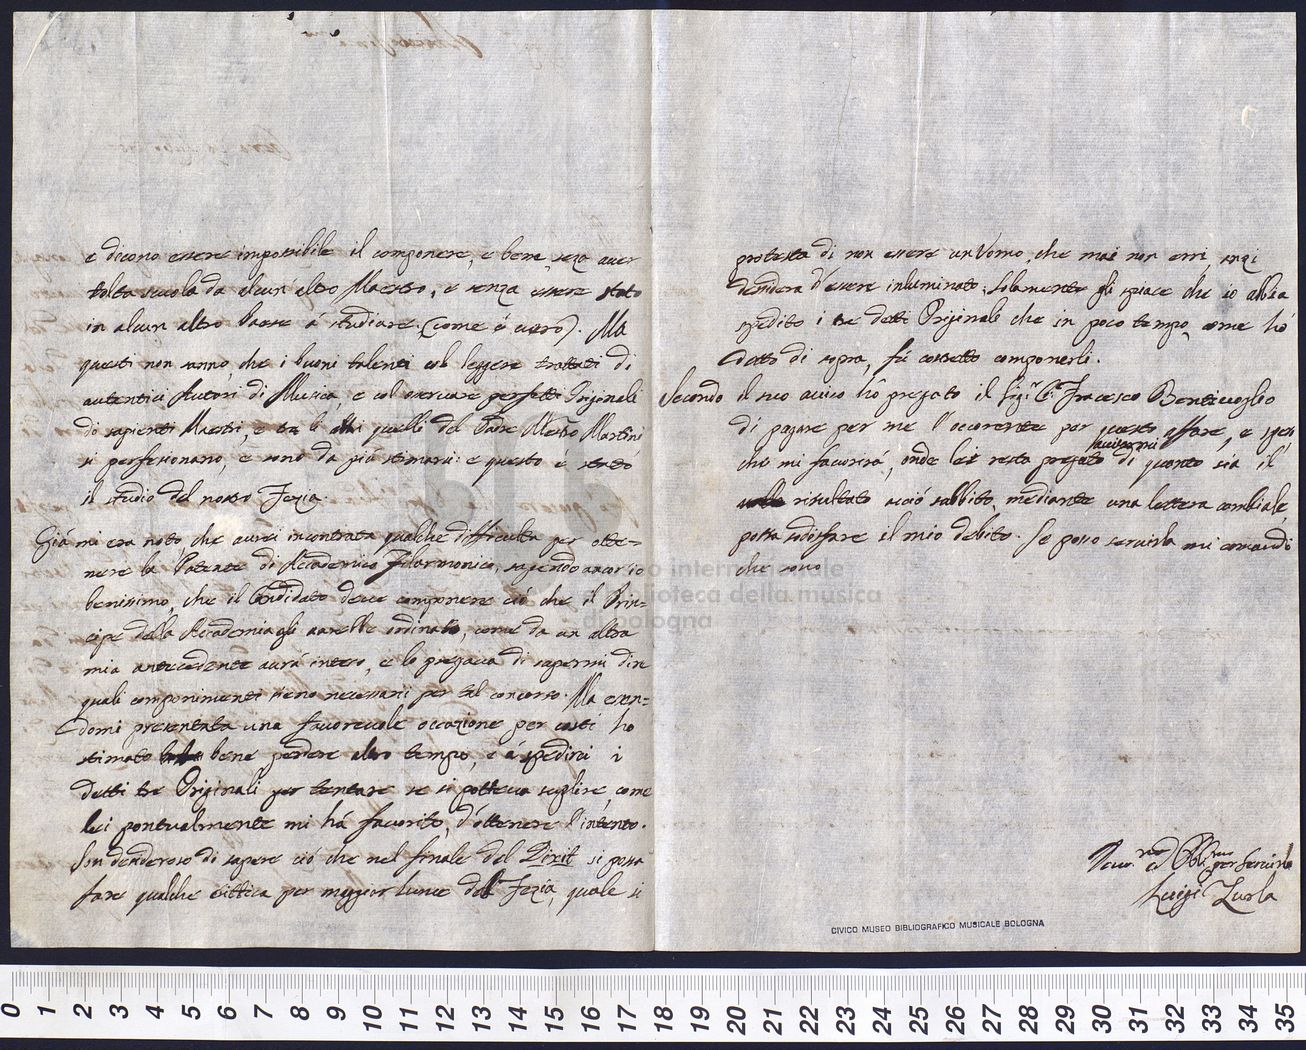 e dicono essere impossibile il componere, e bene, senza aver
tolta scuola da alcun altro Maestro, e senza essere stato
in alcun altro Paese á studiare. (come é vero). Ma
questi non sanno, che i buoni talenti col leggere trattati di
autentici Autori di Musica, e col osservare perfetti Originali
di sapienti Maestri, e tra li altri quelli del Padre Mestro Martini
si perfesionano, e sono da piú stimarsi: e questo é stato
il studio del nostro Fezia.
Giá mi era noto, che avrei incontrata qualche difficulta per otte-
nere la Patente di Accademico Filarmonico, sapendo ancor io
benissimo, che il Candidato deve componere ció che il Prin-
cipe della Accademia gli avrebbe ordinato, come da un altra
mia antecedente avrá inteso, e lo pregava di sapermi dire
quali componimenti sieno necessarii per tal concorso. Ma essen-
domi presentata una favorevole occazione per costi ho
stimato bene perdere altro tempo, e á spedirci i
detti tre Originali per tentare se si potteva scegliere, come
lei pontualmente mi há favorito, d'ottenere l'intento.
Son desideroso di sapere ció che nel finale del Dixit si possa
fare qualche crittica per maggior lume del Fezia, quale si
protesta di non essere un Uomo, che mai non erri, anzi
desidera d'essere inluminato, solamente gli spiace che io abbia
spedito i tre detti Originali che in poco tempo, come hó
detto di sopra, fú costretto componerli.
Secondo il suo aviso hó pregato il Sig.r C.e Fracesco Bentivoglio
di pagare per me l'occorente per questo affare, e spero
che mi favorirá, onde lei resta pregato di avvisarmi quanto sia il
risultato acció subbito, mediante una lettera cambiale,
possa sodisfare il mio debito. Se posso servirla mi comandi
che sono
Luigi Zurla
CIVICO MUSEO BIBLIOGRAFICO MUSICALE BOLOGNA
museo internazionale
e biblioteca della musica
di bologna
0 1 2 3 4 5 6 7 8 9 10 11 12 13 14 15 16 17 18 19 20 21 22 23 24 25 26 27 28 29 30 31 32 33 34 35